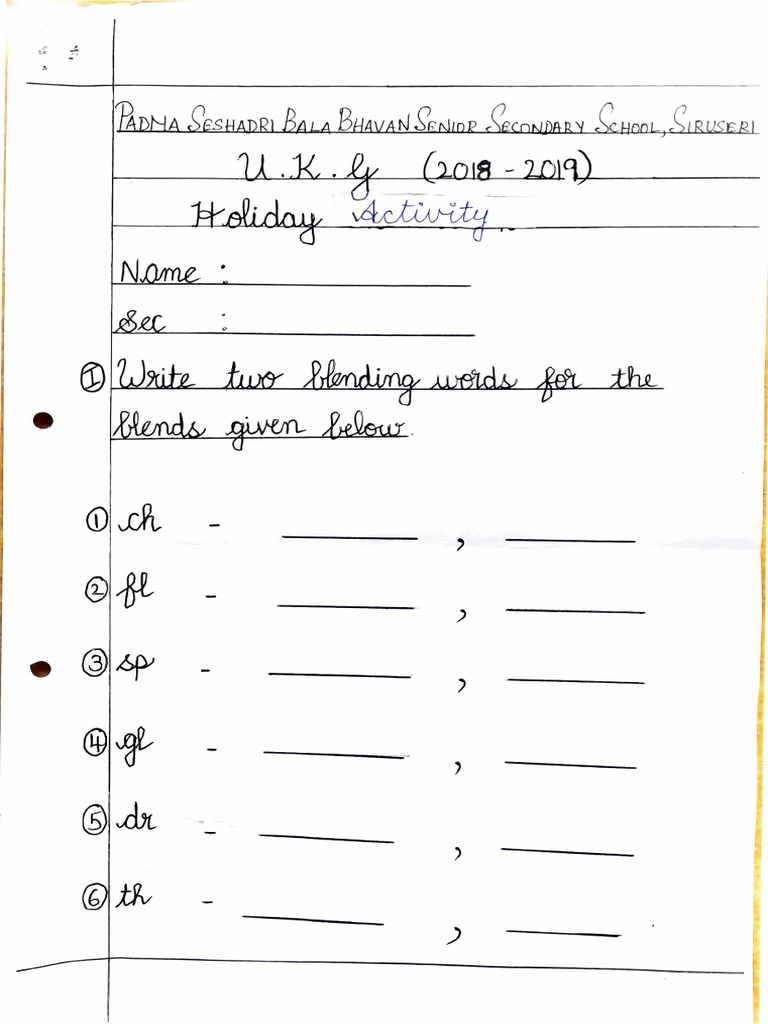 PADMA SESHADRI BALA BHAVAN SENIOR SECONDARY SCHOOL, SIRUSERI
U.K.G (2018 - 2019)
Holiday Activity
Name :
Sec :
I Write two blending words for the
blends given below.
1 ch - ________ , ________
2 fl - ________ , ________
3 sp - ________ , ________
4 gl - ________ , ________
5 dr - ________ , ________
6 th - ________ , ________